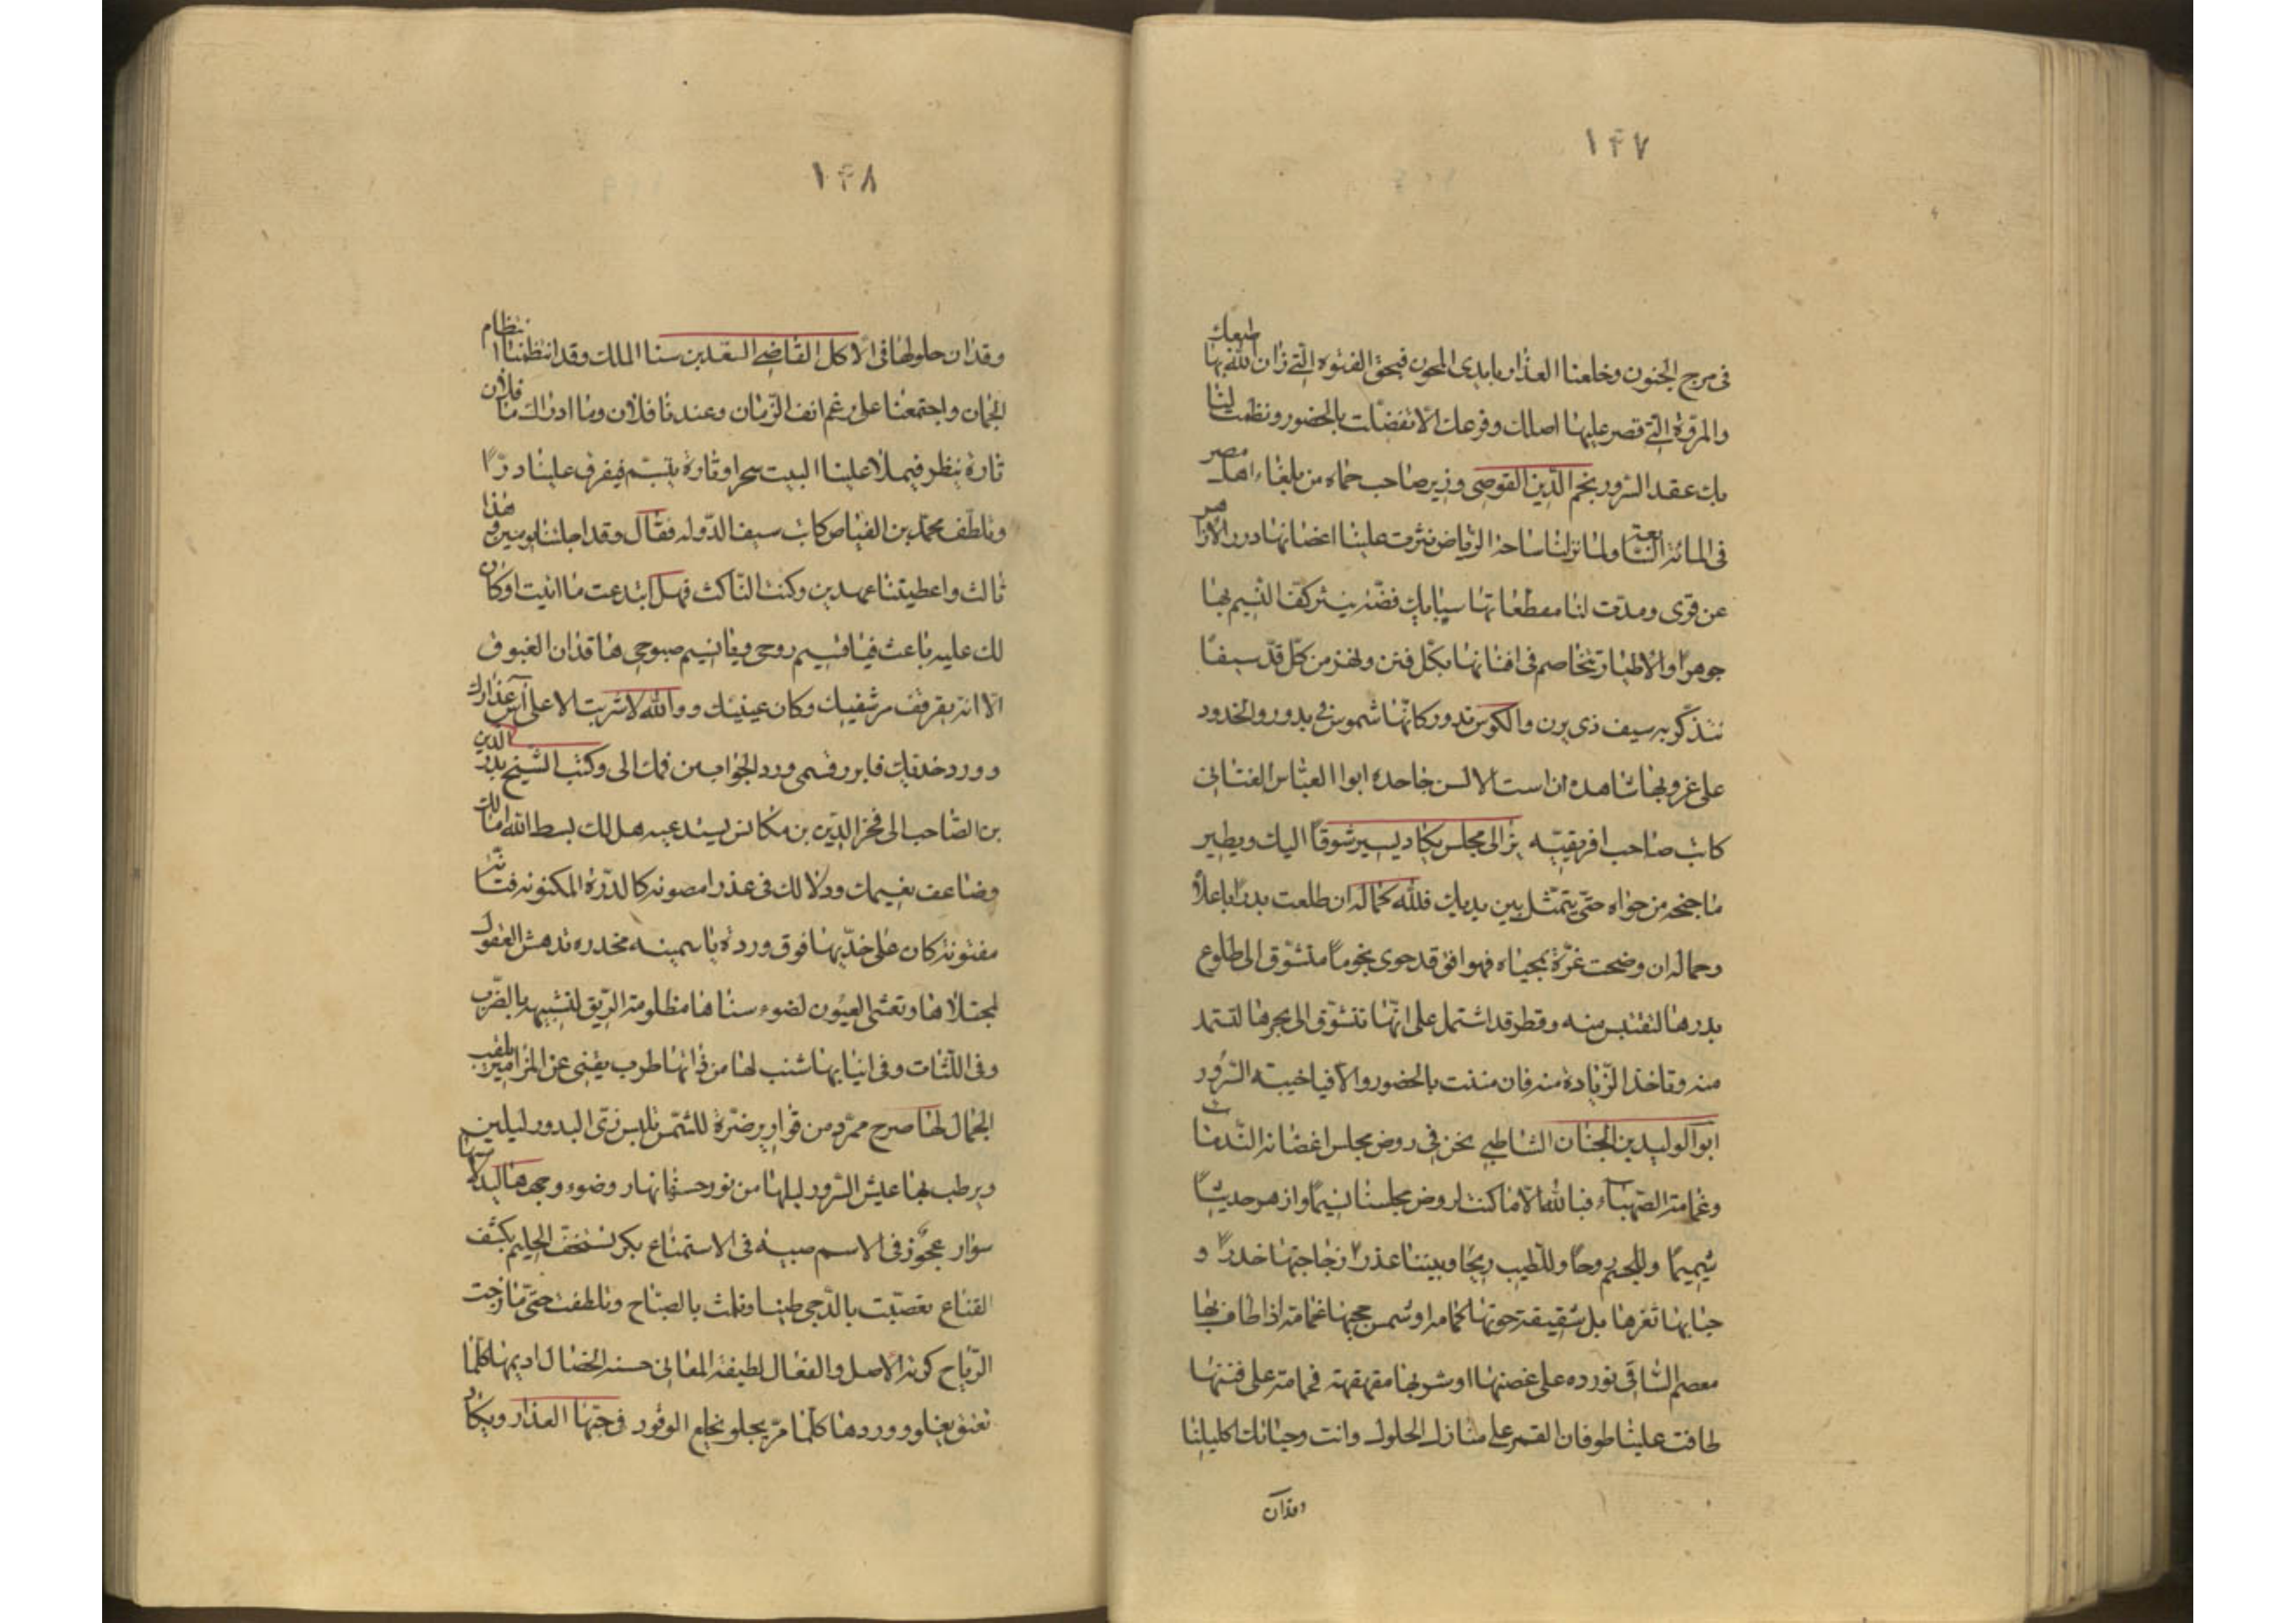 ١٤٧
فى مرج الجنون وخلعنا العذار بايدى المجون فبحق الفتوه الّتى زان اللّه بها طبعك
والمروّة الّتى قصر عليها اصلك وفرعك الّا تفضّلت بالحضور ونظمت لنا
بك عقد السّرور نجم الدّين القوصى وزير صاحب حماه من بلغاء اهل مصر
فى المائة السّابعة ولمّا نزلنا ساحة الرّياض نثرت علينا اغصانها درر الازاهر
عن قوى ومدّت لنا مقطعاتها سبايك فضّة ينثر كفّ النّسيم بها
جوهرا والاطيار تتخاصم فى افنانها بكّل فنن ولهز من كلّ قدّ سيفا
نتذكّر به سيف ذى يزن والكوس تدور كانّها شموس فى بدور والخدود
على غروبها شاهده ان است الالسن جاحده ابوا العبّاس الغسّانى
كاتب صاحب افريقيّه الى مجلس يكاد يسير شوقاً اليك ويطير
باجنحه من جواه حتّى يتمثّل بين يديك فللّه كماله ان طلعت بدراً باعلاه
وجماله ان وضحت غرّة بمحياه فهو افق قد حوى نجوماً متشوّق الى طلوع
بدرها لتقتبس منه وقطر قد اشتمل على انّها تتشوّق الى بحرها لتستمد
منه وتاخذ الزّيادة منه فان مننت بالحضور والّا فيا خيبة السّرور
ابوا الوليد بن الجنان الشّاطبى نحن فى روض مجلس اغصانه النّدمات
وغمامته الصّهباء فبا للّه الّا ما كنت لروض مجلسنا نسيماً وازهر حديثاً
شميماً وللجسم روحاً وللطّيب ريحا وبيننا عذراً زجاجتها خدراً و
حبابها ثغرها بل شقيقة حوتها كمامه او شمس حجبها غمامة اذا طاف بها
معصم السّاقى فورده على غصنها او شربها مقهقهة فحمامة على فننها
طافت علينا طوفان القمر على منازل الحلول وانت وحياتك اكليلنا
وقدان
١٤٨
وقدان حلولها فى الاكل القاضى السّعد بن سنا الملك وقد انتظمنا انتظام
الجمان واجتمعنا على رغم انف الزّمان وعندنا فلان وما ادراك ما فلان
تارة ينظر فيملا علينا البيت سحرا وتارة يتبسّم فيفرق علينا درّاً
وتلطّف محمّد بن الفيّاض كاتب سيف الدّوله فقال وقد اجلنا يومين وهذا
ثالث واعطيتنا عهدين وكنت النّاكث فهل ابتدعت ما اتيت او كان
لك عليه باعث فيا قسيم روحى ويا نسيم صبوحى ها قد ان الغبوق
الّا انّه بقرقف مرشفيك وكان عينيك ووالله لا شربت الا على آس عذارك
وورد خديك فابرز رقمى ورد الجواب من فمك الى وكتب الشّيخ بدر الدين
بن الصّاحب الى فخر الدّين بن مكانس يستدعيه هل لك بسط الله امالك
وضاعف نعيمك ودلالك فى عذرا مصونه كالدّرة المكنونه فتانه
مفتونة كان على خدّيها فوق ورده ياسمينه مخدره تدهش العقول
لمجتلاها وتعشى العيون لضوء سناها مظلومة الرّيق لتشبيهه بالضّرب
وفى اللّثات وفى انيابها شنب لها من ذاتها طرب يغنى عن المزامير بلقيس
الجمال لها صرح ممرّد من قوارير ضرّة للشّمس تلبس زى البدور ليلين
ويرطب بها عيش السّرور ليلها من نور حسنها نهار وضوء وجهها البدر
سوار عجوز فى الاسم صبيّه فى الاستمتاع بكر تستخفّ الحليم بكشف
القناع تعصّبت بالدّجى طيبا وتلثّمت بالصّباح وتلطفت حتّى مازجت
الرّياح كونه الاصل والفعال لطيفة المعانى حسنه الخصال اديمها كلّما
تعتق يغلو ووردها كلّما مرّ يحلو نخلع الوقور فى حبّها العذار ويكاد